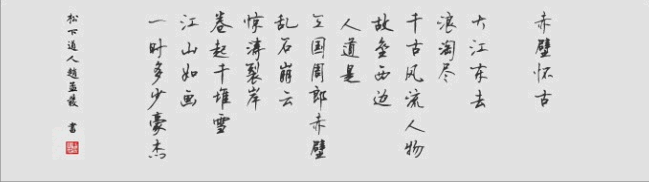 赤壁怀古
大江东去
浪淘尽
千古风流人物
故垒西边
人道是
三国周郎赤壁
乱石崩云
惊涛裂岸
卷起千堆雪
江山如画
一时多少豪杰
松下道人赵孟 书